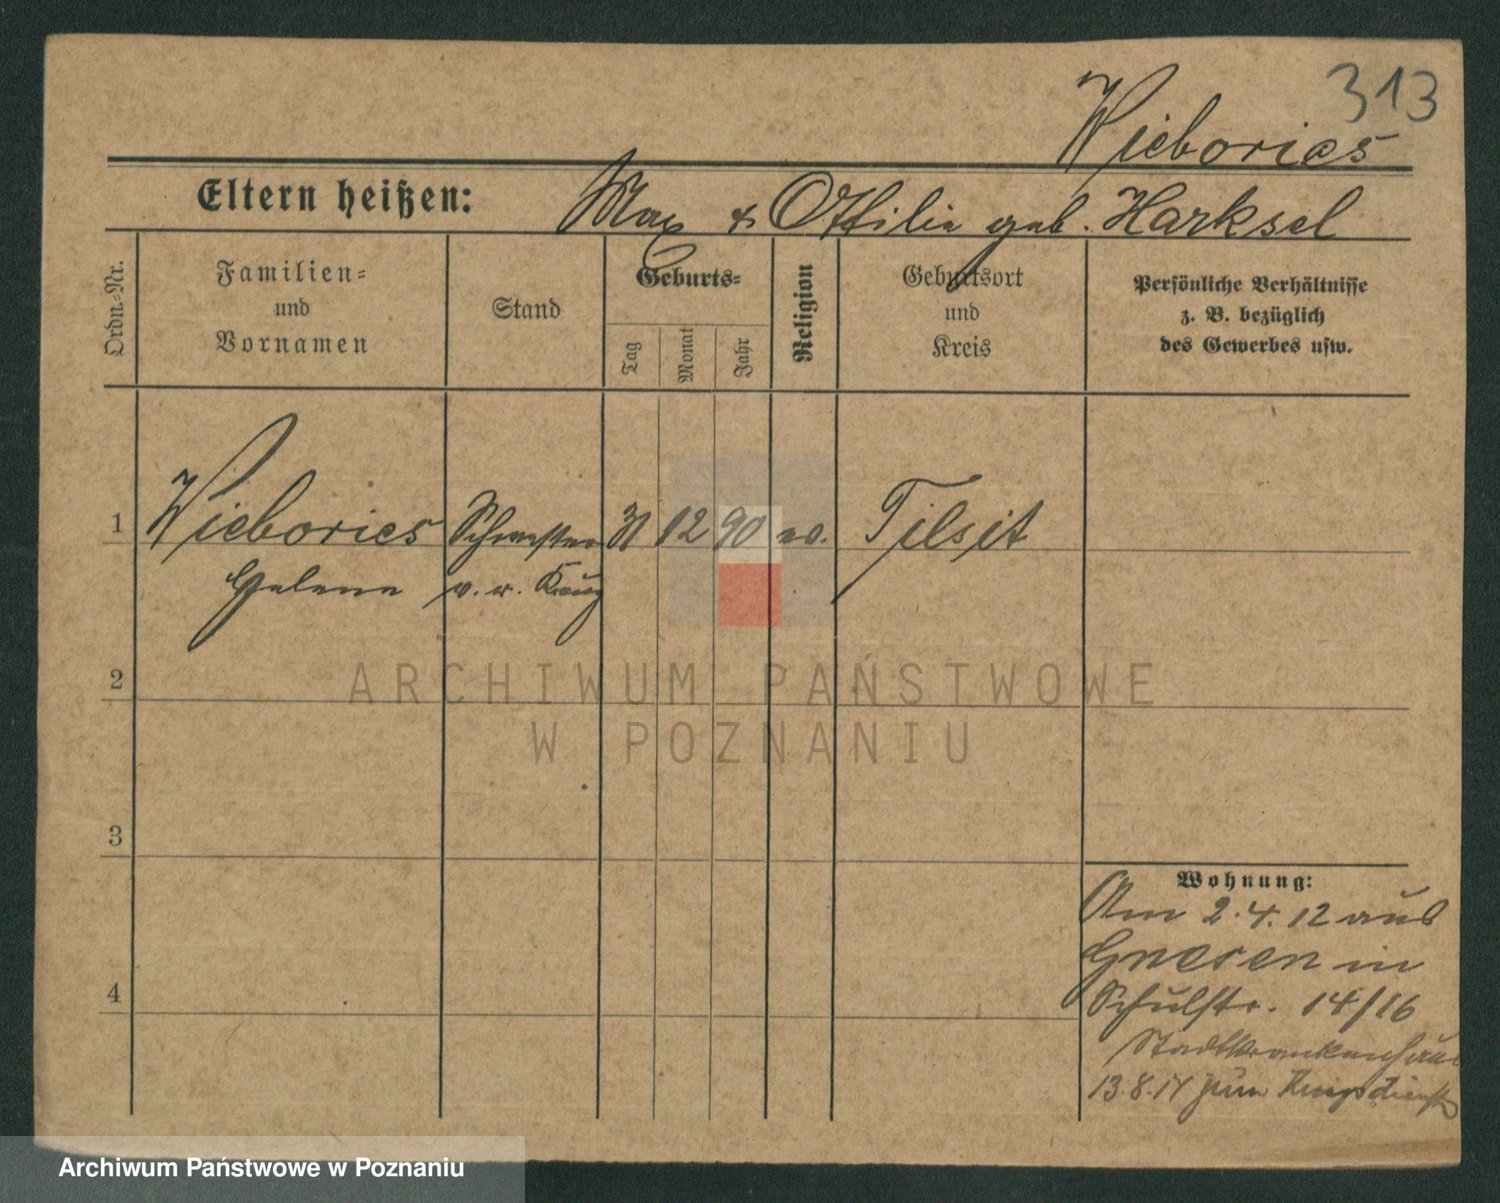 313
Wiebories
Eltern heißen: Max & Ottilie geb. Harksel
Ordn.-Nr.
Familien-
und
Vornamen
Stand
Geburts-
Tag
Monat
Jahr
Religion
Geburtsort
und
Kreis
Persönliche Verhältnisse
z. B. bezüglich
des Gewerbes usw.
1 Wiebories Schwester 31 12 90 ev. Tilsit
Helene v. r. Kreuz
2
ARCHIWUM PAŃSTWOWE
W POZNANIU
3
Wohnung:
Am 2.4.12 aus
Gnesen in
4
Schulstr. 14/16
Stadtkrankenhaus
13.8.14 zum Kriegsdienst
Archiwum Państwowe w Poznaniu